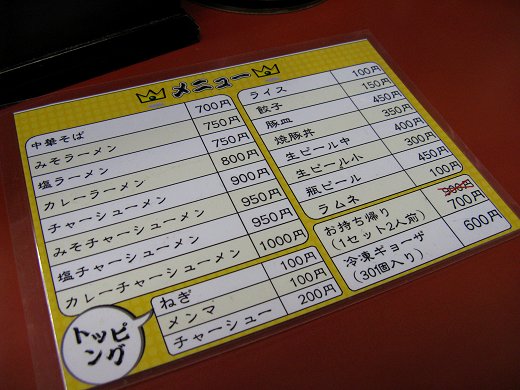 メニュー
中華そば 700円
みそラーメン 750円
塩ラーメン 750円
カレーラーメン 800円
チャーシューメン 900円
みそチャーシューメン 950円
塩チャーシューメン 950円
カレーチャーシューメン 1000円
トッピ
ング
ねぎ 100円
メンマ 100円
チャーシュー 200円
ライス 100円
餃子 150円
豚皿 450円
焼豚丼 350円
生ビール中 400円
生ビール小 300円
瓶ビール 450円
ラムネ 100円
お持ち帰り
(1セット2人前) 700円
冷凍ギョーザ 600円
(30個入り)